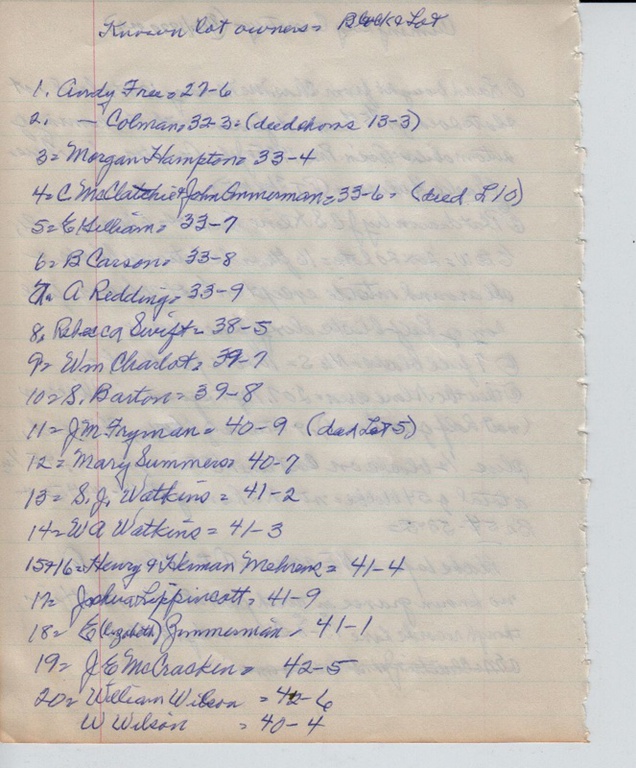 Known lot owners = Block & Lot
1. Andy Free = 27-6
2. — Colman = 32-3 = (deed shows 13-3)
3 = Morgan Hampton = 33-4
4 = C. McClatchie & John Ammerman = 33-6 = (deed L 10)
5 = E Killiam = 33-7
6 = B Carson = 33-8
7 = A Redding = 33-9
8. Rebecca Swift = 38-5
9 = Wm Charlot = 39-7
10 = S. Barton = 39-8
11 = J M Fryman = 40-9 (deed Lot 5)
12 = Mary Summers = 40-7
13 = S. J. Watkins = 41-2
14 = W A Watkins = 41-3
15+16 = Henry & Herman Mehrens = 41-4
17 = Joshua Lippincott = 41-9
18 = E(lizabeth) Zimmerman = 41-1
19 = J E McCracken = 42-5
20 = William Wilson = 42-6
W Wilson = 40-4